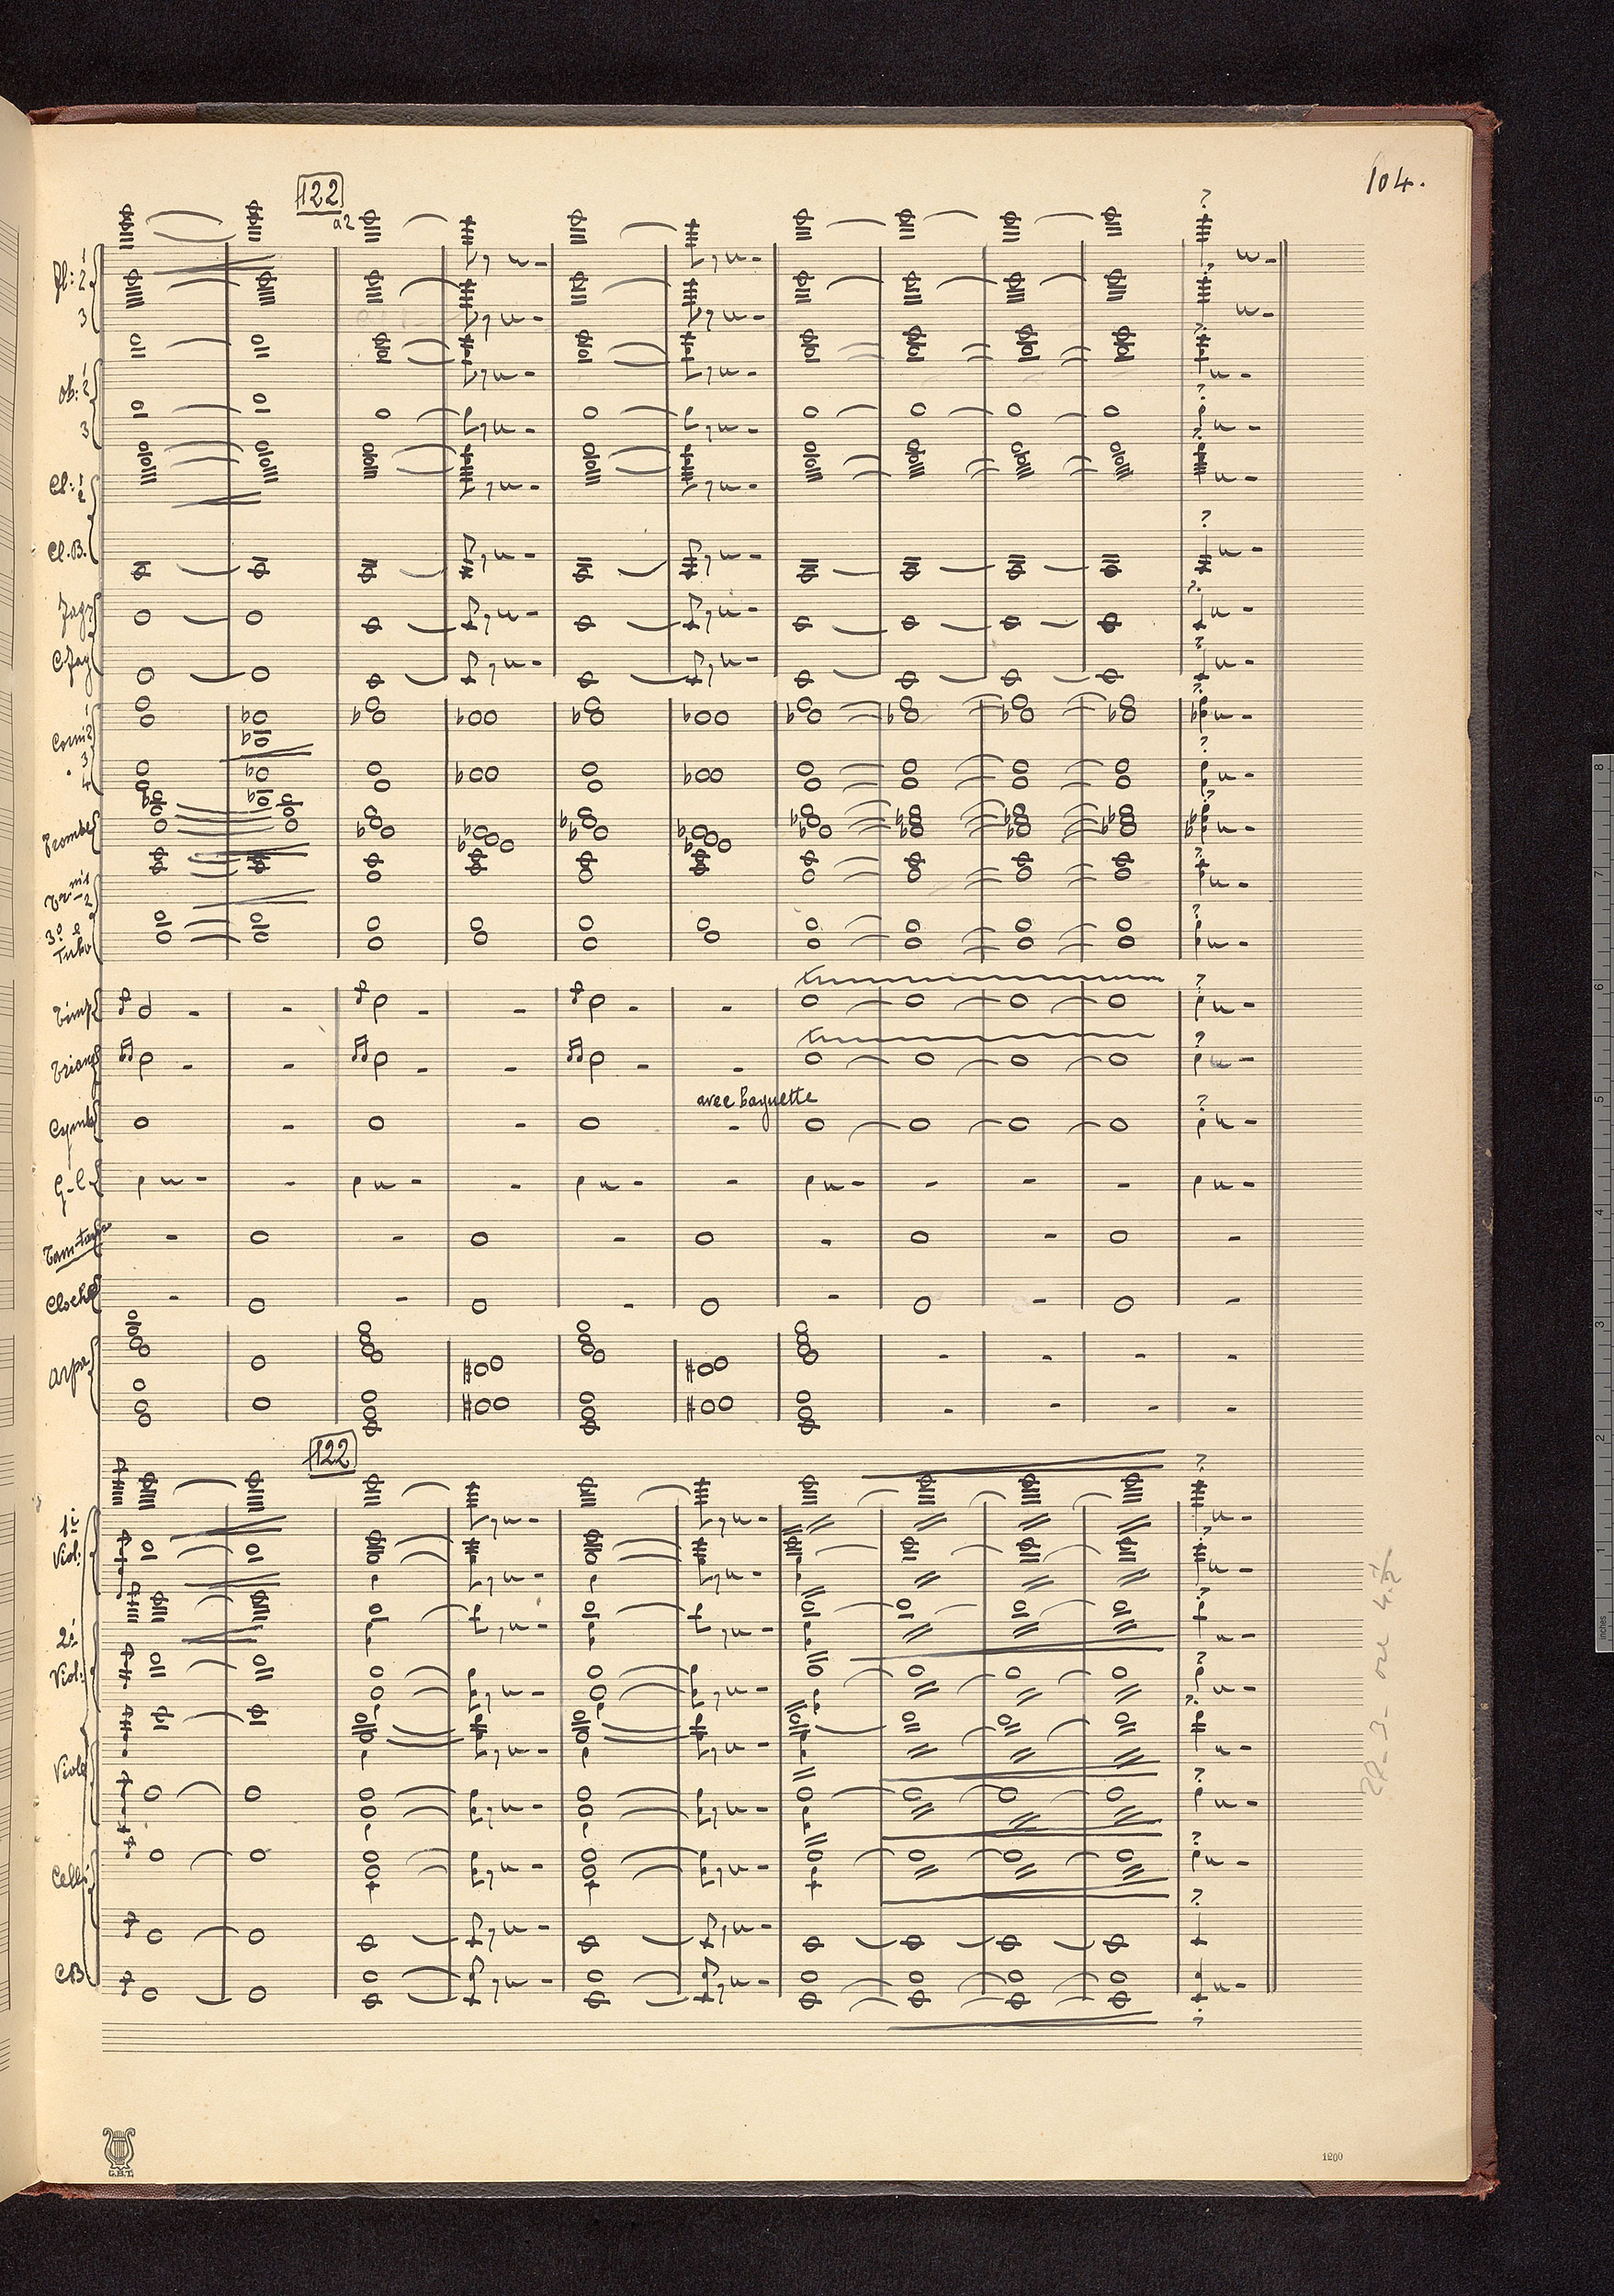 104.
122
a2
Fl: 1
2
3
Ob: 1
2
3
Cl: 1
2
Cl. B.
Fag
C Fag
Corni 1
2
3
4
Trombe
3º e
Tuba
Timp
Triang
avec baguette
Cymb
G-C.
Tam-tam
Cloche
Arpa
122
1r
Viol:
2d
Viol:
Viole
Celli
CB
C.B.T.
1200
inches
1
2
3
4
5
6
7
8